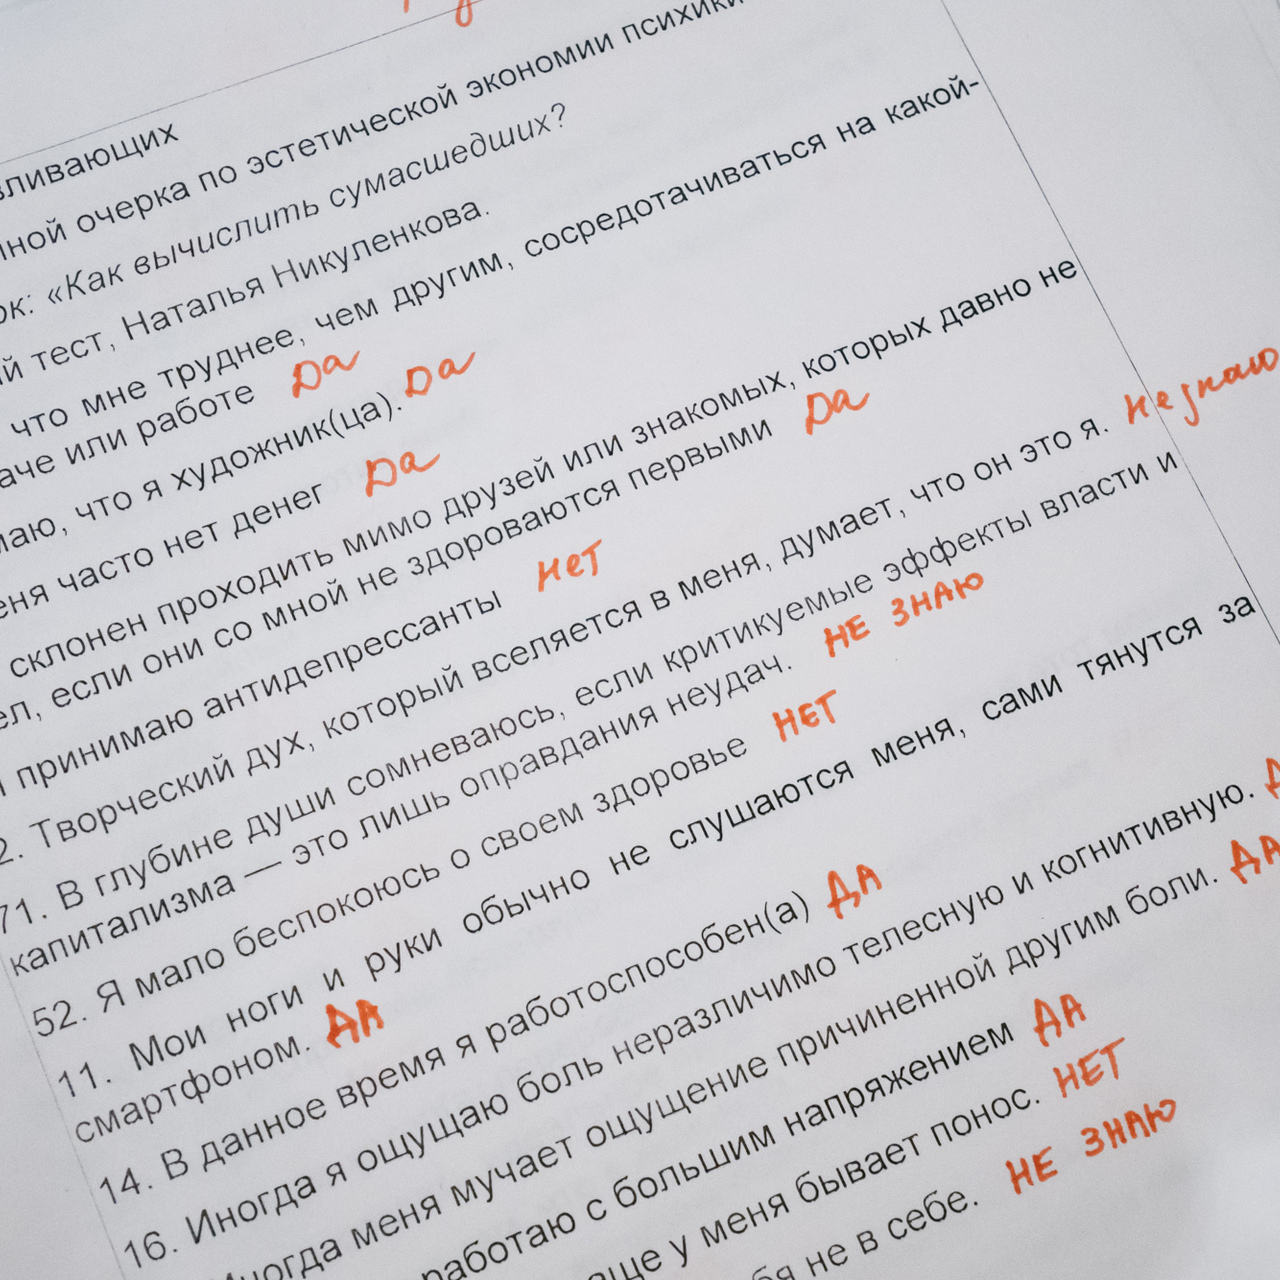 вливающих
ной очерка по эстетической экономии психики
ок: «Как вычислить сумасшедших?
й тест, Наталья Никуленкова.
что мне труднее, чем другим, сосредотачиваться на какой-
аче или работе Да
маю, что я художник(ца). Да
еня часто нет денег Да
склонен проходить мимо друзей или знакомых, которых давно не
ел, если они со мной не здороваются первыми Да
принимаю антидепрессанты Нет
2. Творческий дух, который вселяется в меня, думает, что он это я. Не знаю
71. В глубине души сомневаюсь, если критикуемые эффекты власти и
капитализма — это лишь оправдания неудач. НЕ ЗНАЮ
52. Я мало беспокоюсь о своем здоровье НЕТ
11. Мои ноги и руки обычно не слушаются меня, сами тянутся за
смартфоном. ДА
14. В данное время я работоспособен(а) ДА
16. Иногда я ощущаю боль неразличимо телесную и когнитивную. Д
Иногда меня мучает ощущение причиненной другим боли. ДА
работаю с большим напряжением ДА
аще у меня бывает понос. НЕТ
бя не в себе. НЕ ЗНАЮ